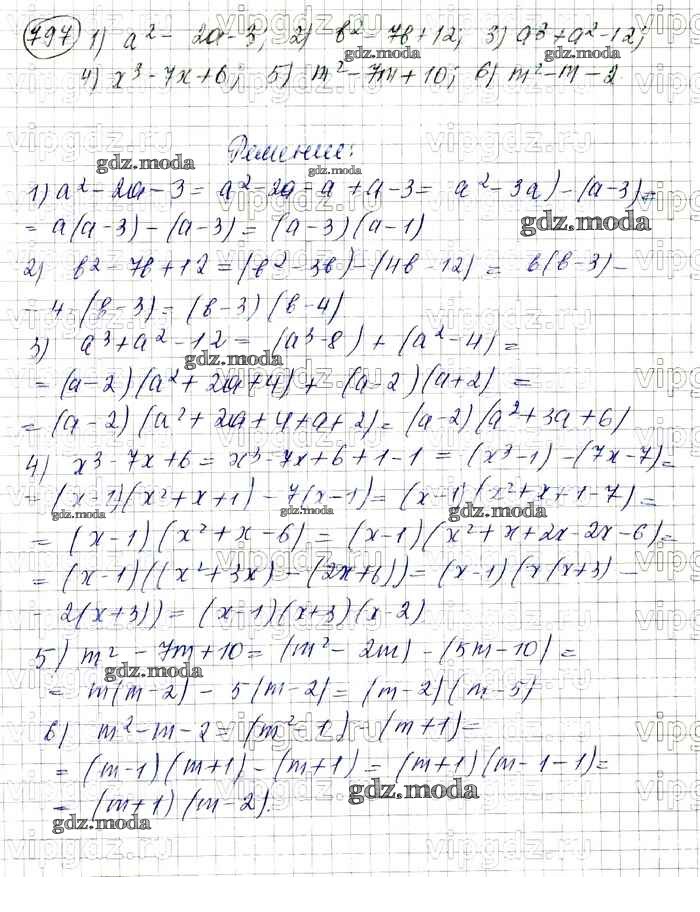 797 1) a² - 2a - 3; 2) b² - 7b + 12; 3) a³ + a² - 12;
4) x³ - 7x + 6; 5) m² - 7m + 10; 6) m² - m - 2
Решение:
1) a² - 2a - 3 = a² - 2a - a + a - 3 = a² - 3a) - (a - 3) =
= a(a - 3) - (a - 3) = (a - 3)(a - 1)
2) b² - 7b + 12 = (b² - 3b) - (4b - 12) = b(b - 3) -
- 4 · (b - 3) = (b - 3)(b - 4)
3) a³ + a² - 12 = (a³ - 8) + (a² - 4) =
= (a - 2)(a² + 2a + 4) + (a - 2)(a + 2) =
= (a - 2)(a² + 2a + 4 + a + 2) = (a - 2)(a² + 3a + 6)
4) x³ - 7x + 6 = x³ - 7x + 6 + 1 - 1 = (x³ - 1) - (7x - 7) =
= (x - 1)(x² + x + 1) - 7(x - 1) = (x - 1)(x² + x + 1 - 7) =
= (x - 1)(x² + x - 6) = (x - 1)(x² + x + 2x - 2x - 6) =
= (x - 1)((x² + 3x) - (2x + 6)) = (x - 1)(x(x + 3) -
- 2(x + 3)) = (x - 1)(x + 3)(x - 2)
5) m² - 7m + 10 = (m² - 2m) - (5m - 10) =
= m(m - 2) - 5(m - 2) = (m - 2)(m - 5)
6) m² - m - 2 = (m² - 1) - (m + 1) =
= (m - 1)(m + 1) - (m + 1) = (m + 1)(m - 1 - 1) =
= (m + 1)(m - 2).
gdz.moda
vipgdz.ru